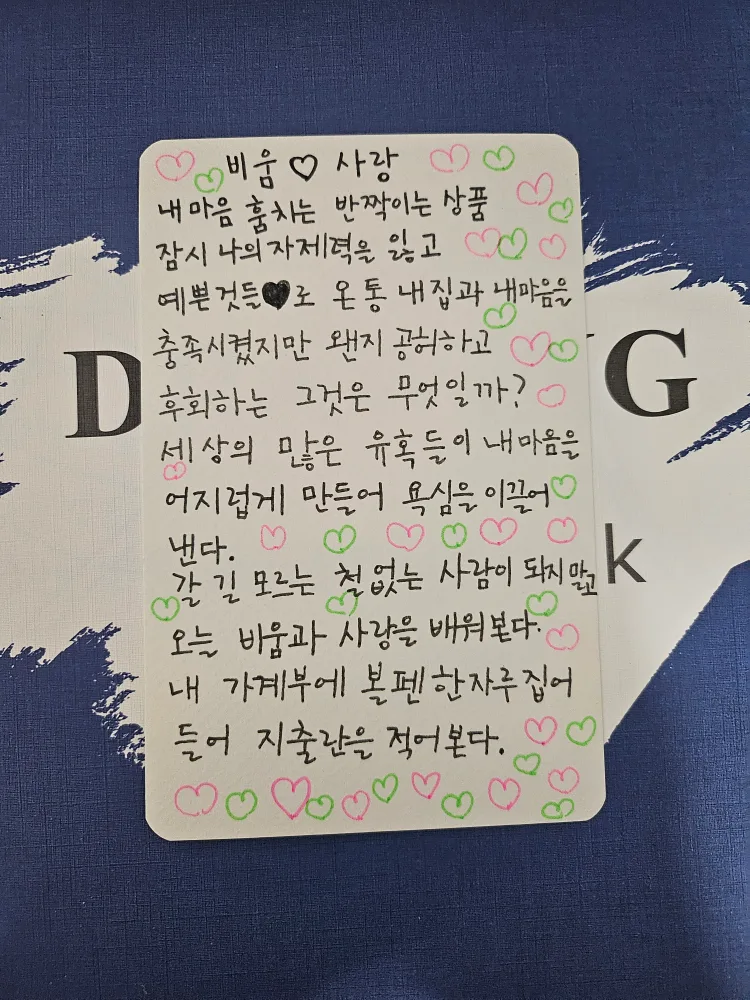 비움 ♡ 사랑
내 마음 훔치는 반짝이는 상품
잠시 나의 자제력을 잃고
예쁜것들♥로 온통 내집과 내마음을
충족시켰지만 왠지 공허하고
후회하는 그것은 무엇일까?
세상의 많은 유혹들이 내마음을
어지럽게 만들어 욕심을 이끌어
낸다.
갈 길 모르는 철없는 사람이 돼지말고
오늘 비움과 사랑을 배워본다.
내 가계부에 볼펜 한자루 집어
들어 지출란을 적어본다.
D
G
k